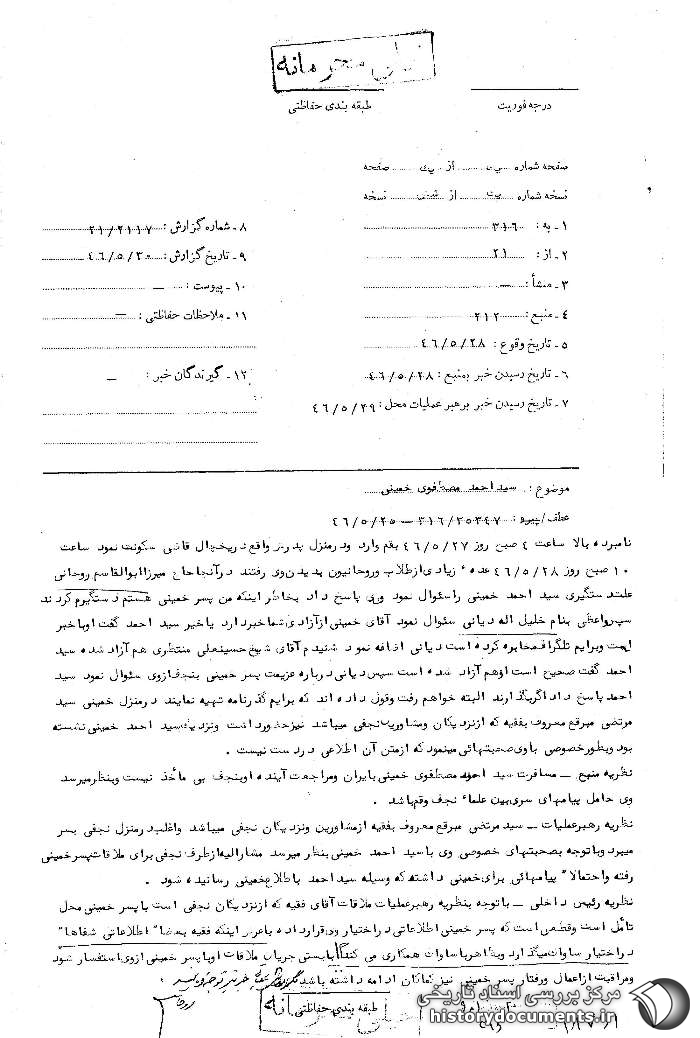 خیلی محرمانه
درجه فوریت
طبقه بندی حفاظتی
صفحه شماره یک از یک صفحه
نسخه شماره از نسخه
۱ـ به : ۳۱۶
۲ـ از : ۲۱
۳ـ منشأ : —
۴ـ منبع : ۲۱۲
۵ـ تاریخ وقوع : ۴۶/۵/۲۸
۶ـ تاریخ رسیدن خبر بمنبع : ۴۶/۵/۲۸
۷ـ تاریخ رسیدن خبر برهبر عملیات محل : ۴۶/۵/۲۹
۸ـ شماره گزارش : ۲۱/۲۱۱۷
۹ـ تاریخ گزارش : ۴۶/۵/۳۰
۱۰ـ پیوست : —
۱۱ـ ملاحظات حفاظتی : —
۱۲ـ گیرندگان خبر : —
موضوع : سید احمد مصطفوی خمینی
عطف/پیرو : ۳۱۶/۲۵۳۴۷ — ۴۶/۵/۲۵
نامبرده بالا ساعت ۴ صبح روز ۴۶/۵/۲۷ بقم وارد ودرمنزل پدرش واقع دریخچال قاضی سکونت نمود ساعت
۱۰ صبح روز ۴۶/۵/۲۸ عده زیادی ازطلاب وروحانیون بدیدن وی رفتند درآنجا حاج میرزا ابوالقاسم روحانی
علت دستگیری سید احمد خمینی را سئوال نمود وی پاسخ داد بخاطر اینکه من پسر خمینی هستم دستگیرم کردند
سپس واعظی بنام خلیل اله دیانی سئوال نمود آقای خمینی ازآزادی شما خبر دارد یاخیر سید احمد گفت اوباخبر
است وبرایم تلگراف مخابره کرده است دیانی اضافه نمود شنیدم آقای شیخ حسینعلی منتظری هم آزاد شده سید
احمد گفت صحیح است اوهم آزاد شده است سپس دیانی درباره عزیمت پسر خمینی بنجف ازوی سئوال نمود سید
احمد پاسخ داد اگربگذارند البته خواهم رفت وقول داده اند که برایم گذرنامه تهیه نمایند درمنزل خمینی سید
مرتضی مبرقع معروف بفقیه که ازنزدیکان ومشاورین نجفی میباشد نیزحضورداشت ونزدیک سید احمد خمینی نشسته
بود وبطورخصوصی باوی صحبتهائی مینمود که ازمتن آن اطلاعی دردست نیست .
نظریه منبع ـ مسافرت سید احمد مصطفوی خمینی بایران ومراجعت آینده اوبنجف بی مأخذ نیست وبنظرمیرسد
وی حامل پیامهای سری بین علماء نجف وقم باشد .
نظریه رهبرعملیات ـ سید مرتضی مبرقع معروف بفقیه ازمشاورین ونزدیکان نجفی میباشد واغلب درمنزل نجفی بسر
میبرد وباتوجه بصحبتهای خصوصی وی باسید احمد خمینی بنظر میرسد مشارالیه ازطرف نجفی برای ملاقات پسرخمینی
رفته واحتمالا" پیامهائی برای خمینی داشته که وسیله سید احمد باطلاع خمینی رسانیده شود .
نظریه رئیس داخلی ـ باتوجه بنظریه رهبرعملیات ملاقات آقای فقیه که ازنزدیکان نجفی است باپسر خمینی محل
تأمل است وقطعی است که پسر خمینی اطلاعاتی دراختیار وی قرارداده باعرض اینکه فقیه بعضا" اطلاعاتی شفاها"
دراختیار ساواک میگذارد وبظاهر باساواک همکاری می کند بایستی جریان ملاقات اوباپسر خمینی ازوی استفسار شود
ومراقبت ازاعمال ورفتار پسر خمینی نیز کماکان ادامه داشته باشد
طبقه بندی حفاظتی
مرکز بررسی اسناد تاریخی
historydocuments.ir